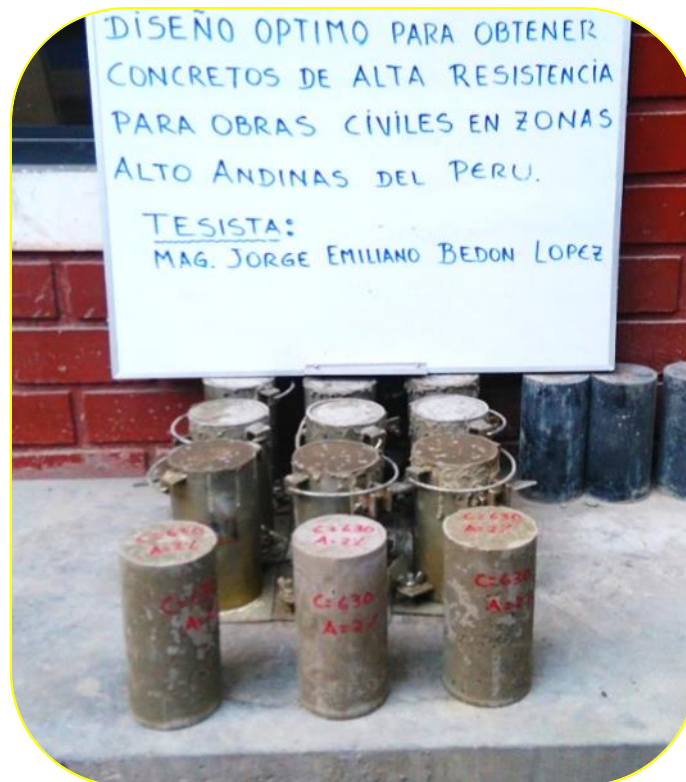 DISEÑO OPTIMO PARA OBTENER
CONCRETOS DE ALTA RESISTENCIA
PARA OBRAS CIVILES EN ZONAS
ALTO ANDINAS DEL PERU.
TESISTA:
MAG. JORGE EMILIANO BEDON LOPEZ
C=630
A=2%
C=630
A=2%
C=630
A=2%
C=630
A=2%
C=630
A=2%